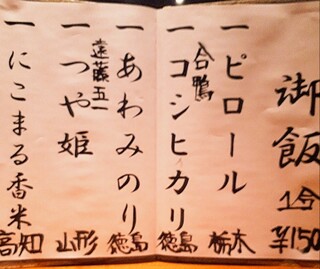 御飯 1合 ¥150
一ピロール 栃木
合鴨
一コシヒカリ 徳島
一あわみのり 徳島
遠藤五一
一つや姫 山形
一にこまる香米 高知